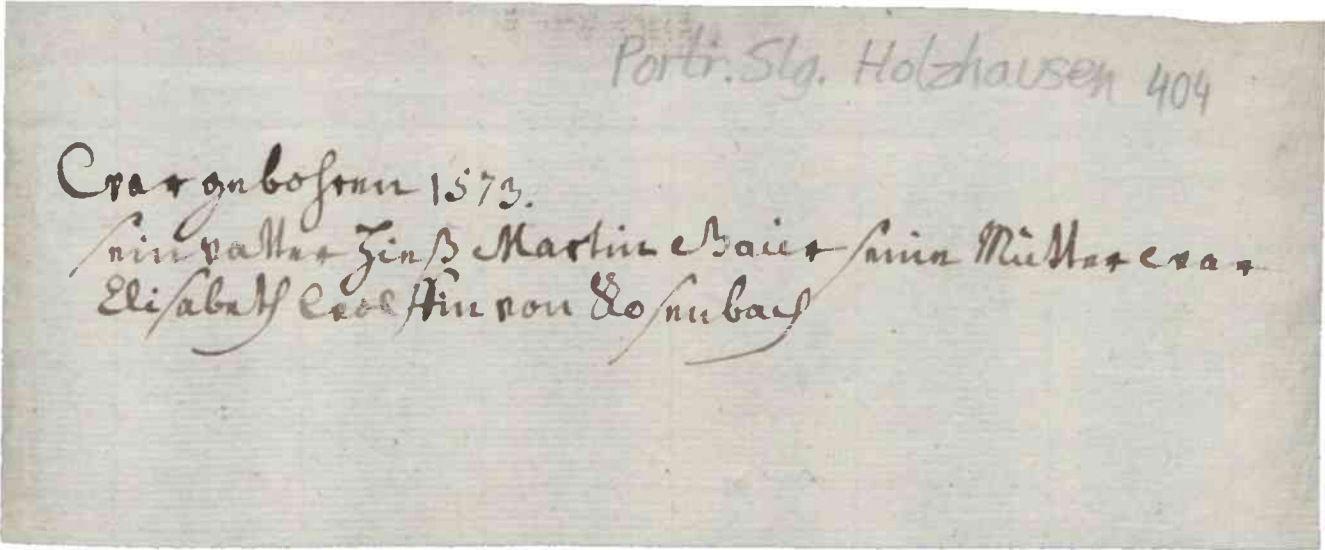 Portr. Slg. Holzhausen 404
War gebohren 1573.
sein vatter hieß Martin Baur seine Mutter war
Elisabeth Wolffin von Rosenbach